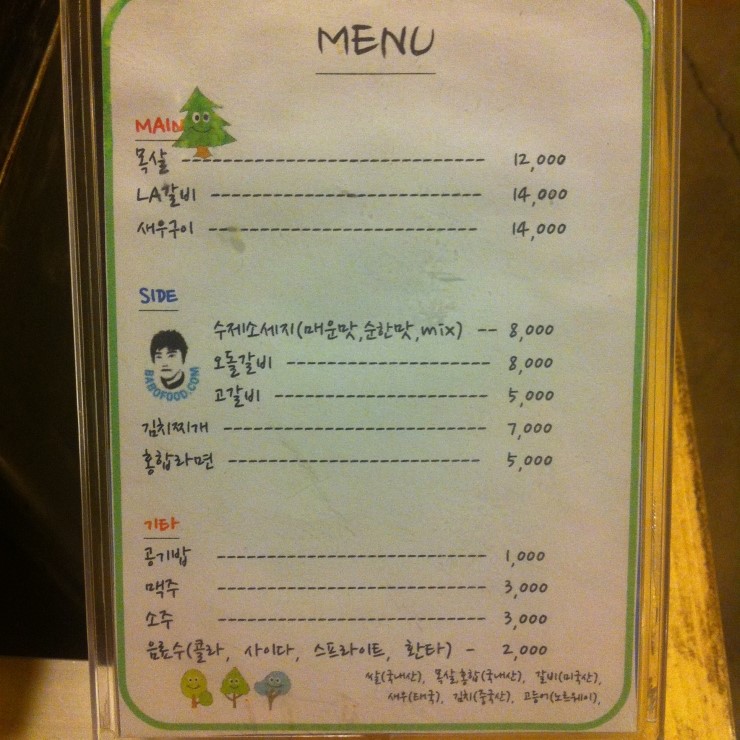 MENU
MAIN
목살 ------------------------------ 12,000
LA갈비 --------------------------- 14,000
새우구이 --------------------------- 14,000
SIDE
수제소세지(매운맛,순한맛,mix) -- 8,000
오돌갈비 -------------------- 8,000
고갈비 --------------------- 5,000
BABOFOOD.COM
김치찌개 -------------------------- 7,000
홍합라면 ------------------------- 5,000
기타
공기밥 --------------------------- 1,000
맥주 --------------------------- 3,000
소주 --------------------------- 3,000
음료수(콜라, 사이다, 스프라이트, 환타) - 2,000
쌀(국내산), 목살,홍합(국내산), 갈비(미국산),
새우(태국), 김치(중국산), 고등어(노르웨이),